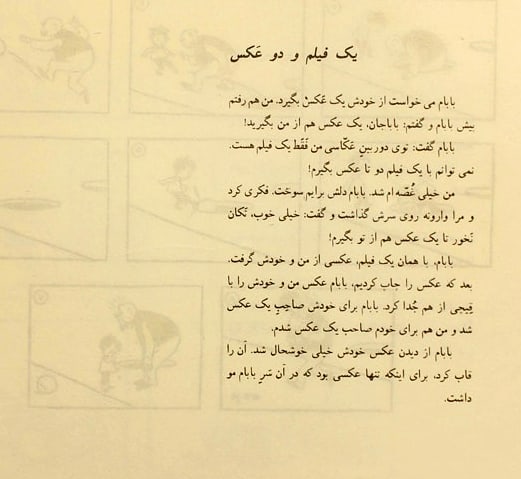 یک فیلم و دو عَکس
بابام می خواست از خودش یک عَکسْ بگیرد. من هم رفتم
پیش بابام و گفتم: باباجان، یک عکس هم از من بگیرید!
بابام گفت: توی دوربینِ عَکّاسی من فَقَط یک فیلم هست.
نمی توانم با یک فیلم دو تا عکس بگیرم!
من خیلی غُصّه ام شد. بابام دلش برایم سوخت. فکری کرد
و مرا وارونه روی سرش گذاشت و گفت: خیلی خوب، تَکان
نَخور تا یک عکس هم از تو بگیرم!
بابام، با همان یک فیلم، عکسی از من و خودش گرفت.
بعد که عکس را چاپ کردیم، بابام عکس من و خودش را با
قِیچی از هم جُدا کرد. بابام برای خودش صاحِبِ یک عکس
شد و من هم برای خودم صاحب یک عکس شدم.
بابام از دیدن عکس خودش خیلی خوشحال شد. آن را
قاب کرد، برای اینکه تنها عکسی بود که در آن سَرِ بابام مو
داشت.